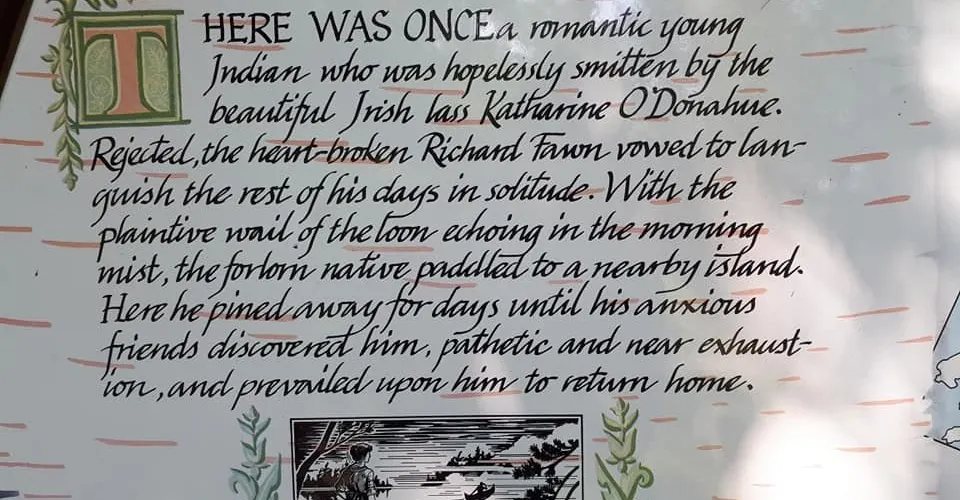 THERE WAS ONCE a romantic young
Indian who was hopelessly smitten by the
beautiful Irish lass Katharine O'Donahue.
Rejected, the heart-broken Richard Fawn vowed to lan-
guish the rest of his days in solitude. With the
plaintive wail of the loon echoing in the morning
mist, the forlorn native paddled to a nearby island.
Here he pined away for days until his anxious
friends discovered him, pathetic and near exhaust-
ion, and prevailed upon him to return home.